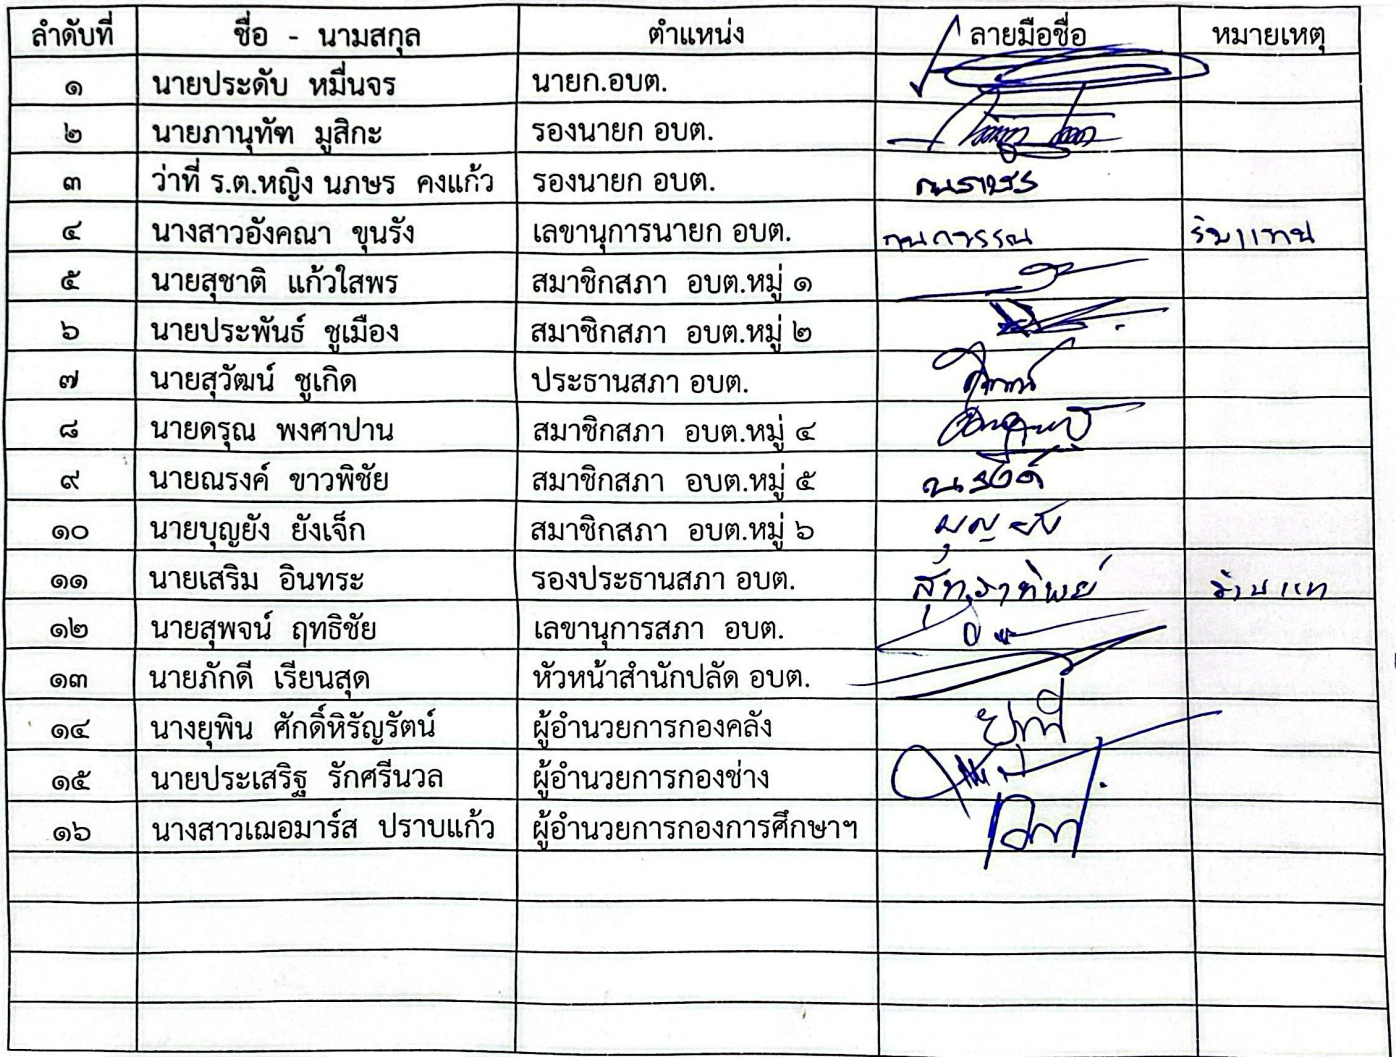 ลำดับที่ ชื่อ - นามสกุล ตำแหน่ง ลายมือชื่อ หมายเหตุ
๑ นายประดับ หมื่นจร นายก.อบต.
๒ นายภานุทัฑ มูสิกะ รองนายก อบต.
๓ ว่าที่ ร.ต.หญิง นภษร คงแก้ว รองนายก อบต.
๔ นางสาวอังคณา ขุนรัง เลขานุการนายก อบต. รับแทน
๕ นายสุชาติ แก้วใสพร สมาชิกสภา อบต.หมู่ ๑
๖ นายประพันธ์ ชูเมือง สมาชิกสภา อบต.หมู่ ๒
๗ นายสุวัฒน์ ชูเกิด ประธานสภา อบต.
๘ นายดรุณ พงศาปาน สมาชิกสภา อบต.หมู่ ๔
๙ นายณรงค์ ขาวพิชัย สมาชิกสภา อบต.หมู่ ๕ ณรงค์
๑๐ นายบุญยัง ยังเจ็ก สมาชิกสภา อบต.หมู่ ๖ บุญยัง
๑๑ นายเสริม อินทระ รองประธานสภา อบต.
๑๒ นายสุพจน์ ฤทธิชัย เลขานุการสภา อบต.
๑๓ นายภักดี เรียนสุด หัวหน้าสำนักปลัด อบต.
๑๔ นางยุพิน ศักดิ์หิรัญรัตน์ ผู้อำนวยการกองคลัง
๑๕ นายประเสริฐ รักศรีนวล ผู้อำนวยการกองช่าง
๑๖ นางสาวเฌอมาร์ส ปราบแก้ว ผู้อำนวยการกองการศึกษาฯ